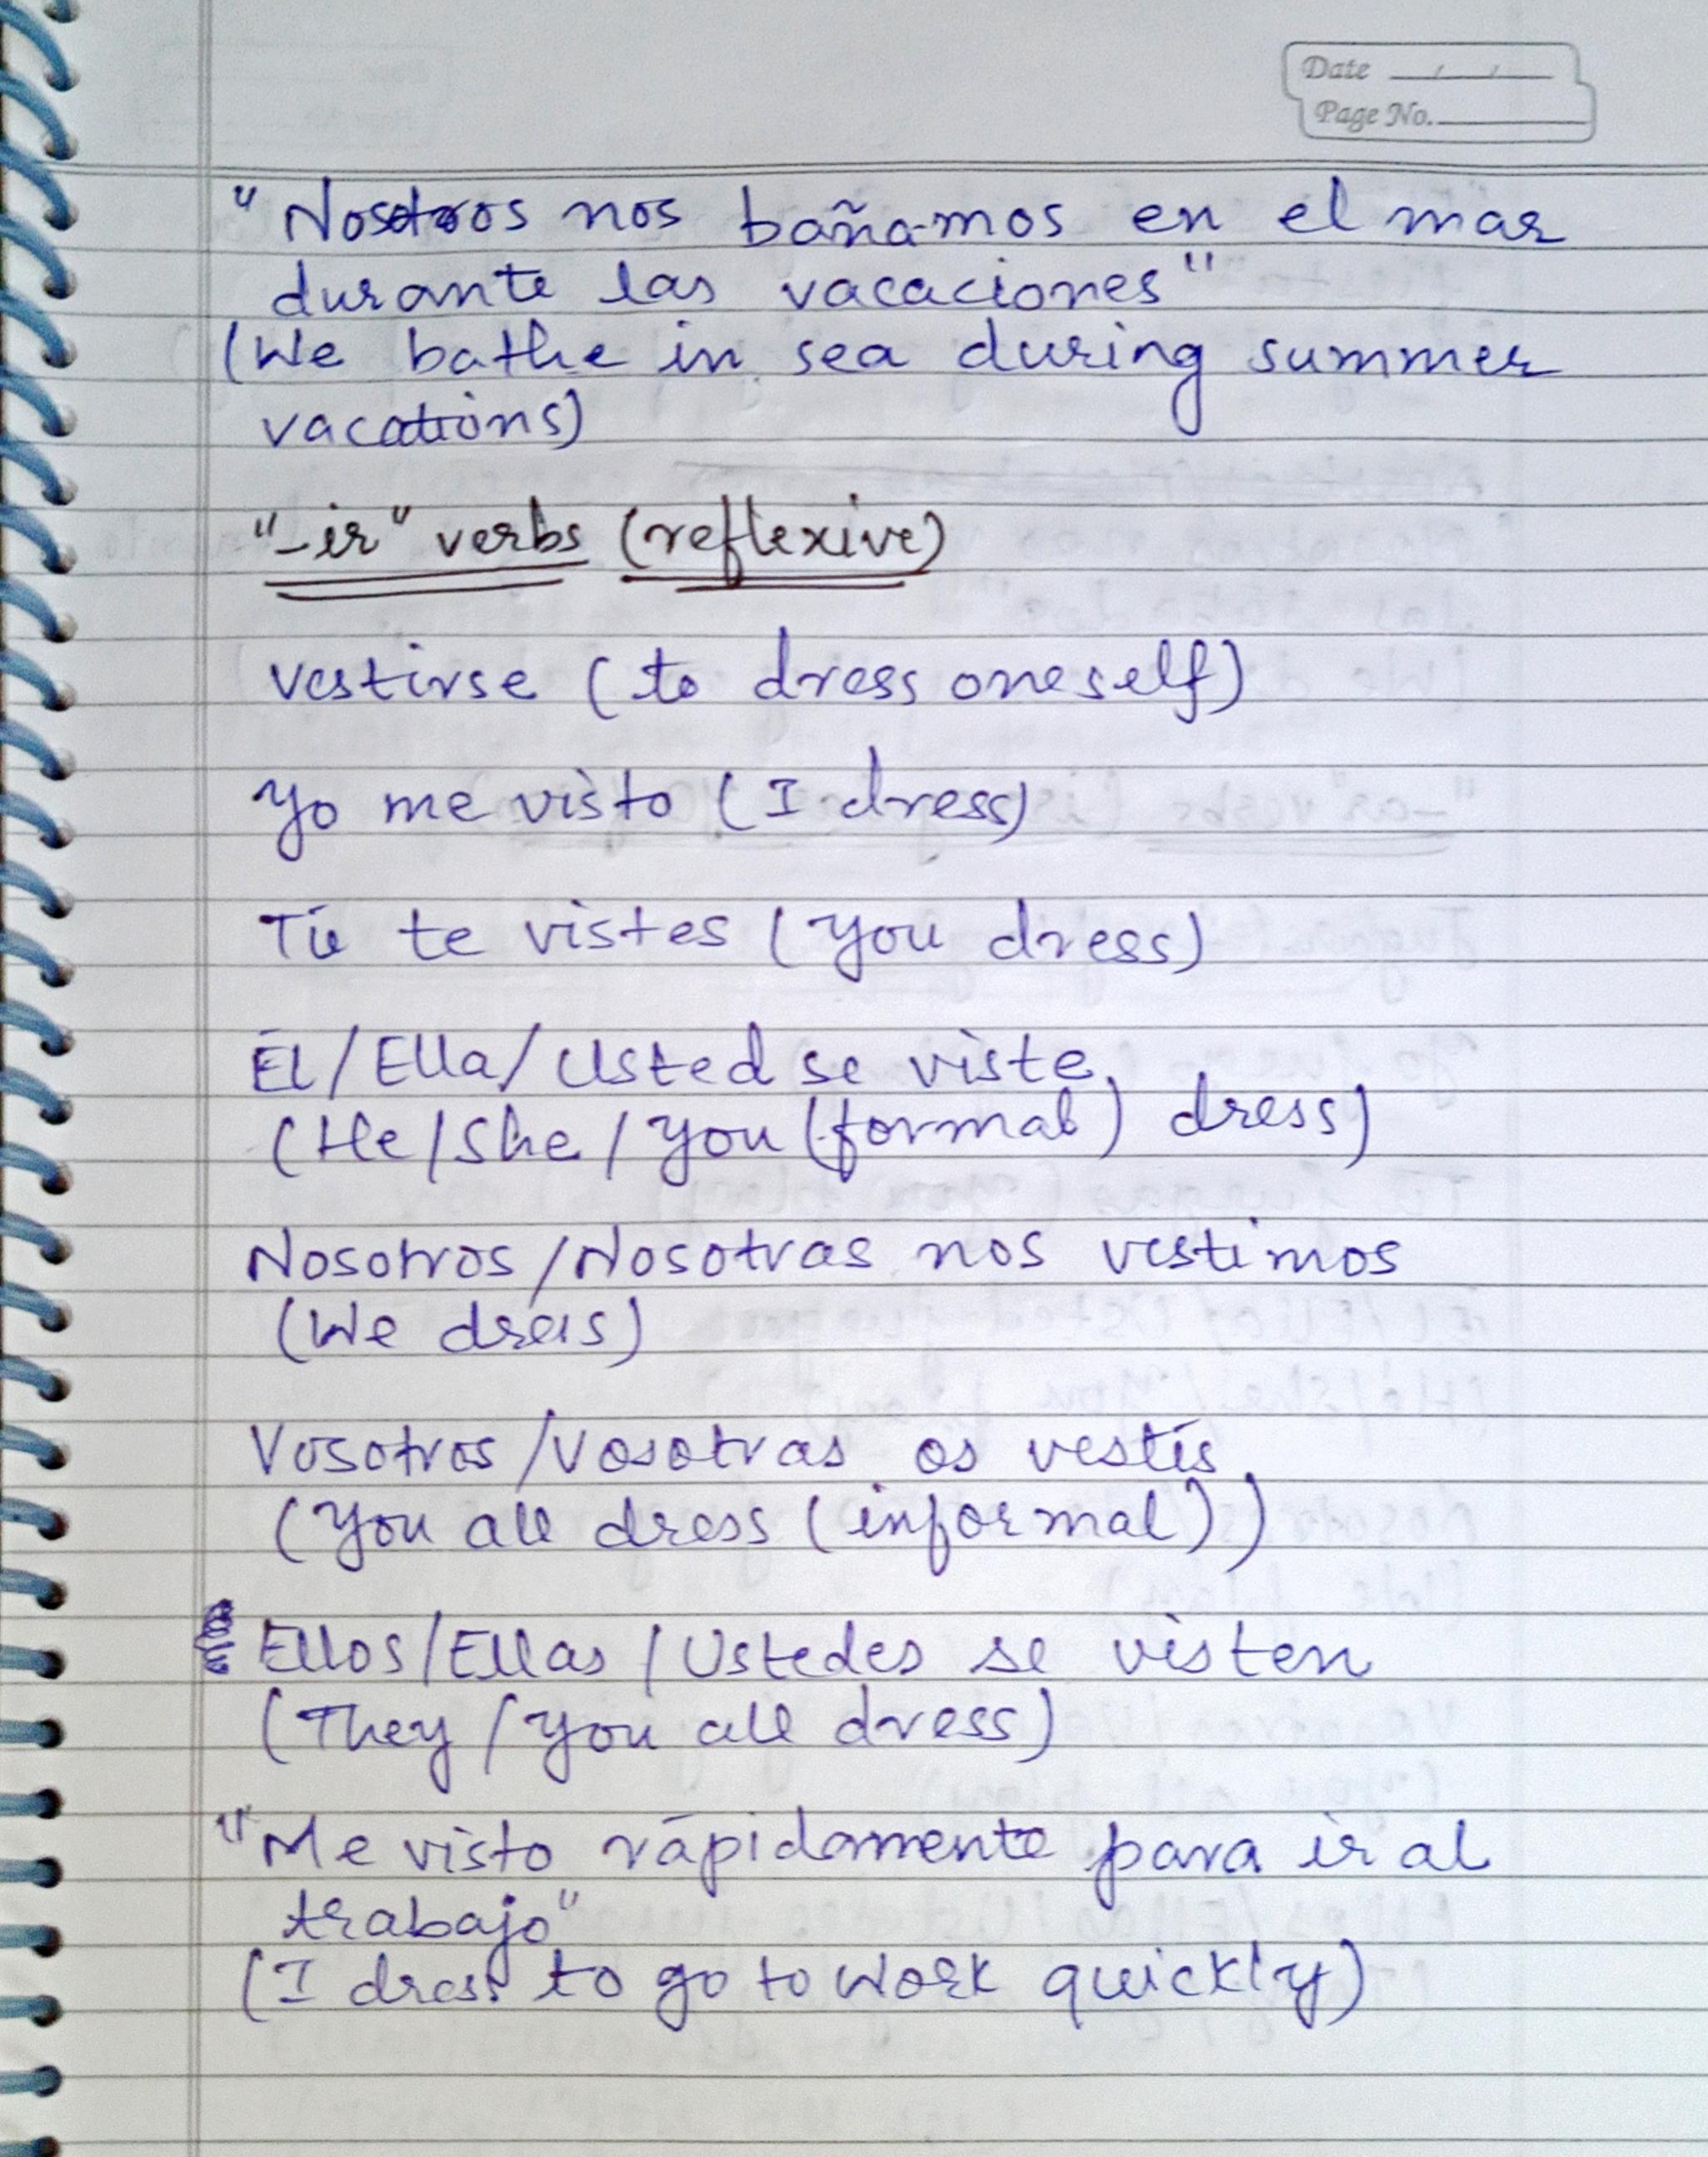 Date / /
Page No.
"Nosotros nos bañamos en el mar
durante las vacaciones"
(We bathe in sea during summer
vacations)
"-ir" verbs (reflexive)
vestirse (to dress oneself)
Yo me visto (I dress)
Tú te vistes (You dress)
Él/Ella/Usted se viste
(He/She/You (formal) dress)
Nosotros/Nosotras nos vestimos
(We dress)
Vosotros/Vosotras os vestís
(You all dress (informal))
Ellos/Ellas/Ustedes se visten
(They/You all dress)
"Me visto rápidamente para ir al
trabajo"
(I dress to go to work quickly)